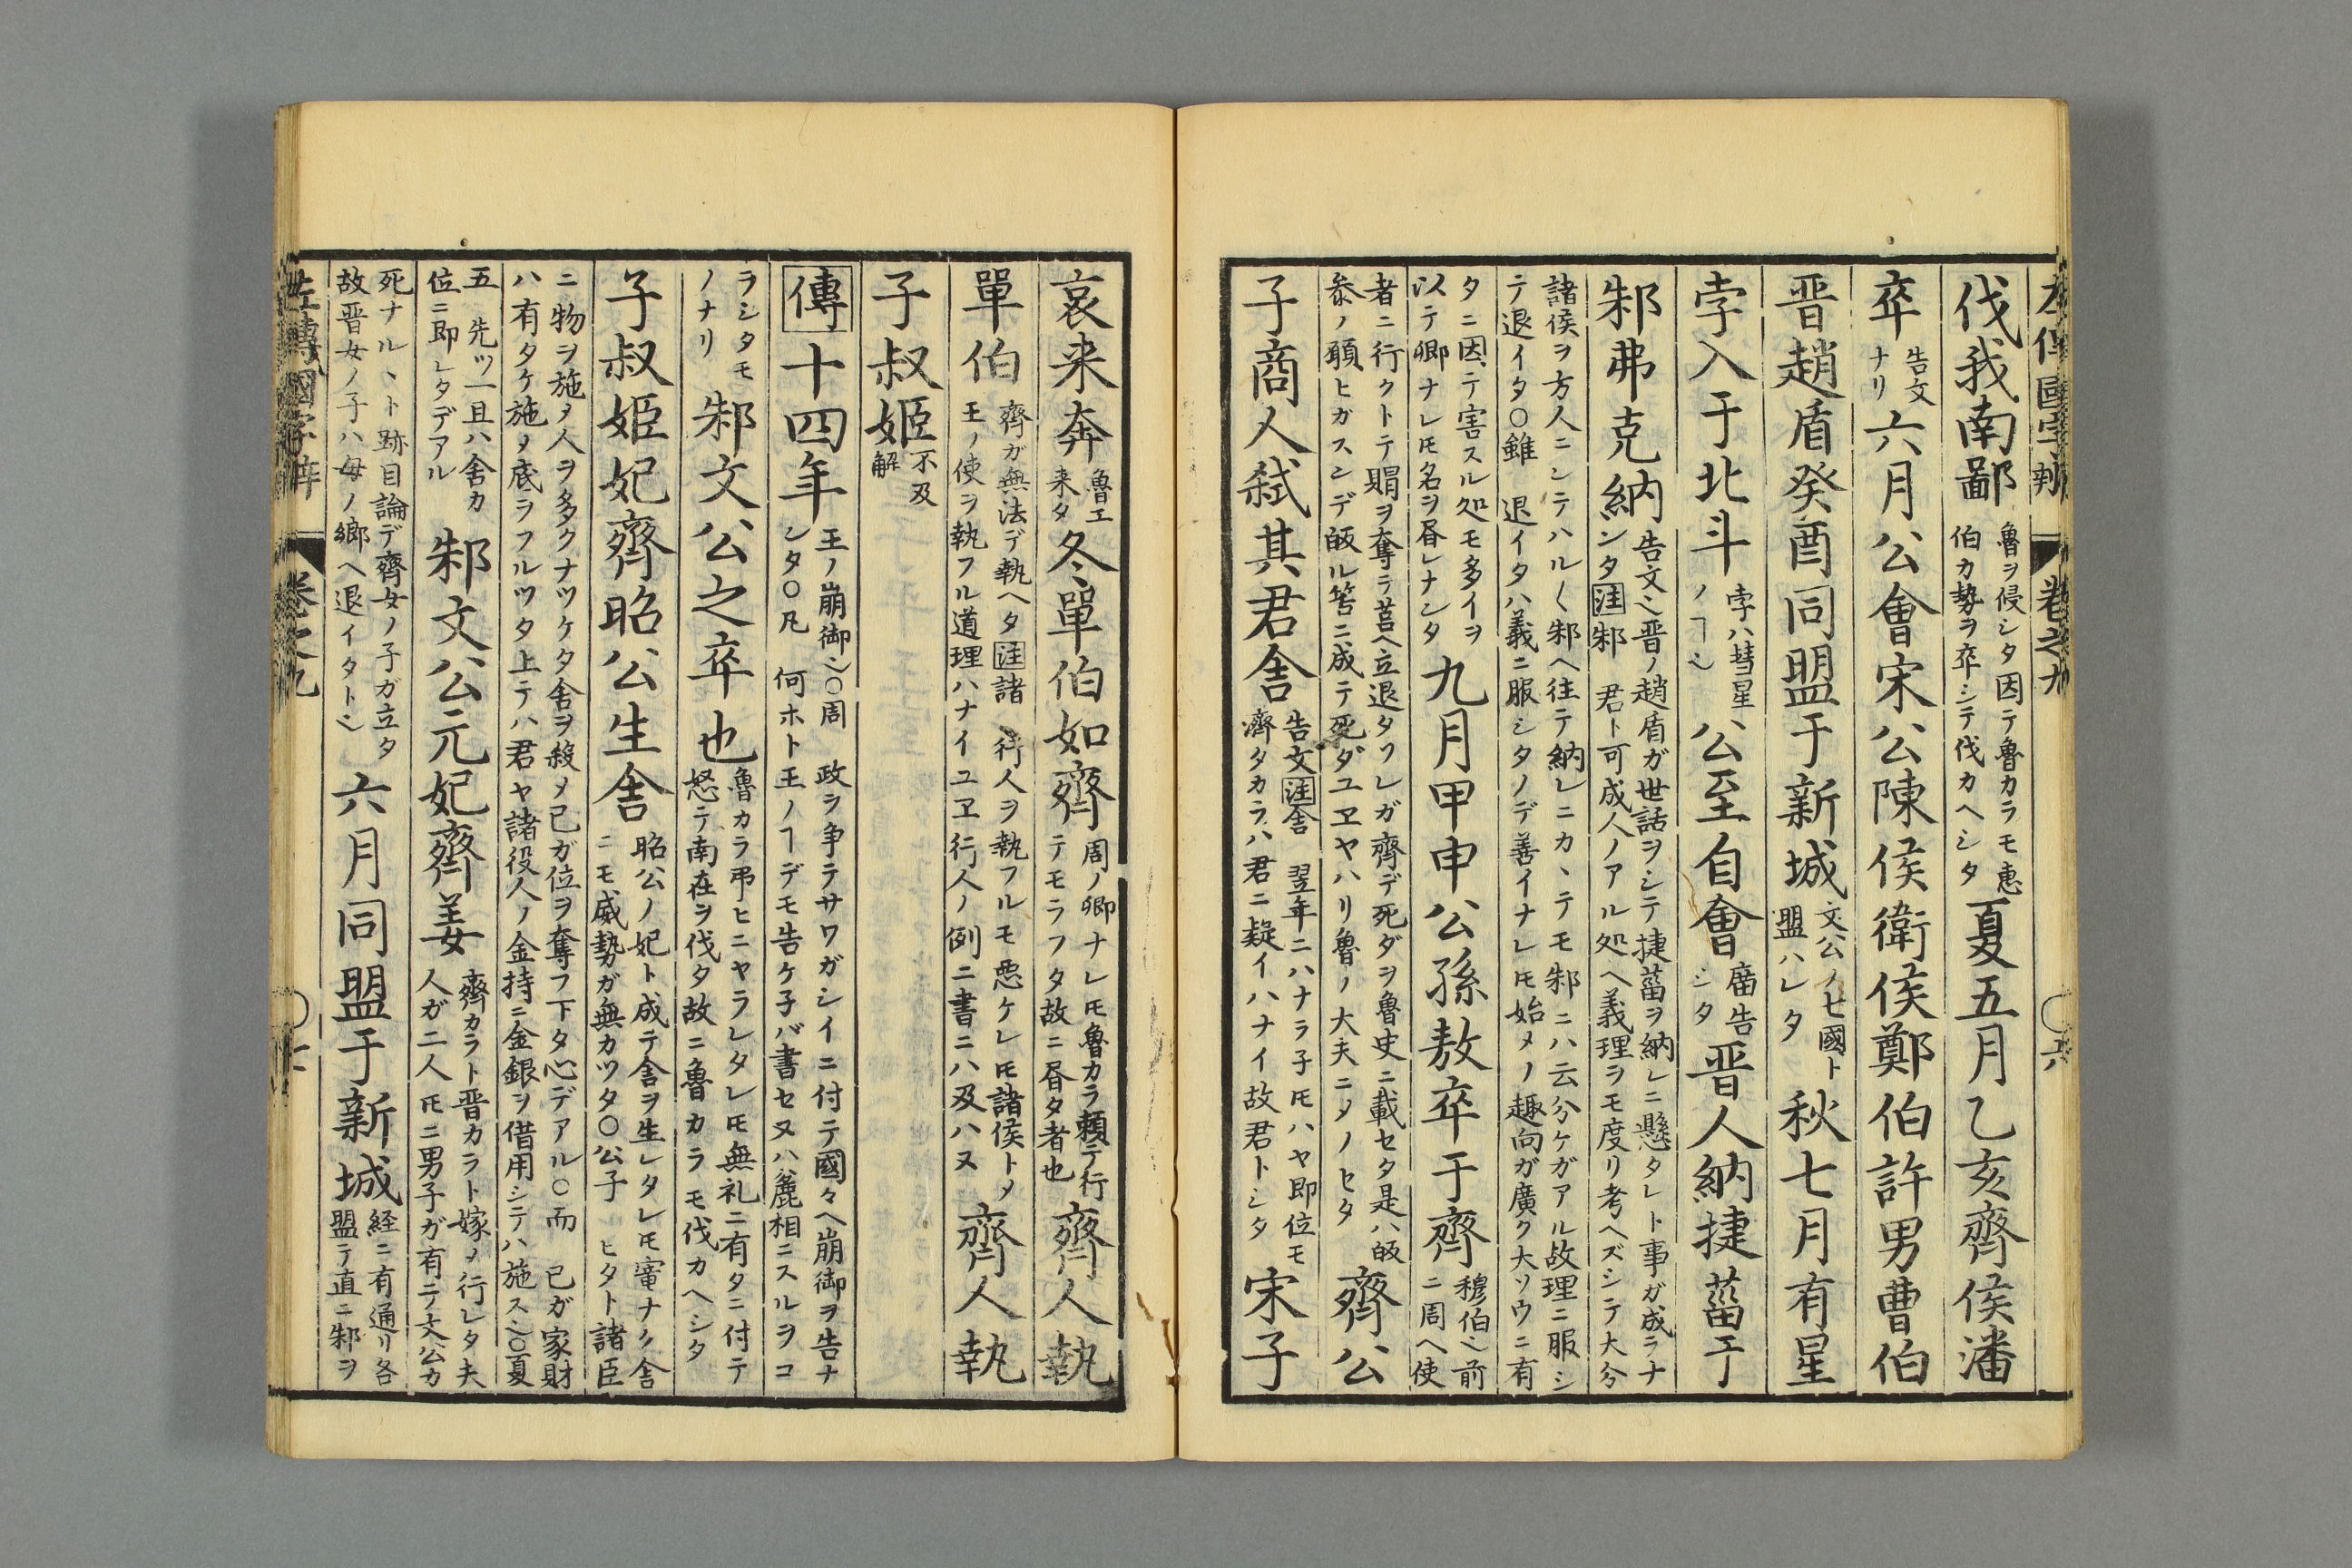 左傳國字辨 巻之九 〇六
伐我南鄙 魯ヲ侵シタ因テ魯カラモ惠伯カ勢ヲ卒シテ伐カヘシタ 夏五月乙亥齊侯潘
卒 告文ナリ 六月公會宋公陳侯衛侯鄭伯許男曹伯
晋趙盾癸酉同盟于新城 文公ノ七國ト盟ハレタ 秋七月有星
孛入于北斗 孛ハ彗星ノヿ也 公至自會 廟告シタ 晋人納捷菑于
邾弗克納 告文也晋ノ趙盾ガ世話ヲシテ捷菑ヲ納レニ懸タレト事ガ成ラナンタ 注 邾 君ト可成人ノアル処ヘ義理ヲモ度リ考ヘズシテ大分
諸侯ヲ方人ニシテハル〱邾ヘ往テ納レニカヽテモ邾ニハ云分ケガアル故理ニ服シ
テ退イタ〇雖 退イタハ義ニ服シタノデ善イナレ𪜈始メノ趣向ガ廣ク大ソウニ有
タニ因テ害スル処モ多イヲ以テ卿ナレ𪜈名ヲ昏レナンタ 九月甲申公孫敖卒于齊 穆伯也前ニ周ヘ使
者ニ行クトテ賵ヲ奪テ莒ヘ立退タワレガ齊デ死ダヲ魯史ニ載セタ是ハ皈
叅ノ願ヒガスンデ皈ル筈ニ成テ死ダユヱヤハリ魯ノ大夫ニメノセタ 齊公
子商人弑其君舎 告文 注 舎 翌年ニハナラ子𪜈ハヤ即位モ濟タカラハ君ニ疑イハナイ故君トシタ 宋子
哀来奔 魯エ来タ 冬單伯如齊 周ノ卿ナレ𪜈魯カラ頼テ行テモラフタ故ニ昏タ者也 齊人執
單伯 齊ガ無法デ執ヘタ 注 諸 行人ヲ執フルモ悪ケレ𪜈諸侯トメ王ノ使ヲ執フル道理ハナイユヱ行人ノ例ニ書ニハ及ハヌ 齊人執
子叔姬 不及解
傳 十四年 王ノ崩御也〇周 政ヲ争テサワガシイニ付テ國々ヘ崩御ヲ告ナンタ〇凡 何ホト王ノヿデモ告ケ子バ書セヌハ麁相ニスルヲコ
ラシタモノナリ 邾文公之卒也 魯カラ弔ヒニヤラレタレ𪜈無礼ニ有タニ付テ怒テ南在ヲ伐タ故ニ魯カラモ伐カヘシタ
子叔姬妃齊昭公生舎 昭公ノ妃ト成テ舎ヲ生レタレ𪜈寵ナク舎ニモ威勢ガ無カツタ〇公子 ヒタト諸臣
ニ物ヲ施メ人ヲ多クナツケタ舎ヲ殺メ已ガ位ヲ奪フ下タ心デアル〇而 已ガ家財
ハ有タケ施メ底ヲフルツタ上テハ君ヤ諸役人ノ金持ニ金銀ヲ借用シテハ施ス也〇夏
五 先ツ一且ハ舎カ位ニ即レタデアル 邾文公元妃齊姜 齊カラト晋カラト嫁メ行レタ夫人ガ二人𪜈ニ男子ガ有ニテ文公カ
死ナルヽト跡目論デ齊女ノ子ガ立タ故晋女ノ子ハ母ノ郷ヘ退イタト也 六月同盟于新城 経ニ有通リ各盟テ直ニ邾ヲ
左傳國字辨 巻之九